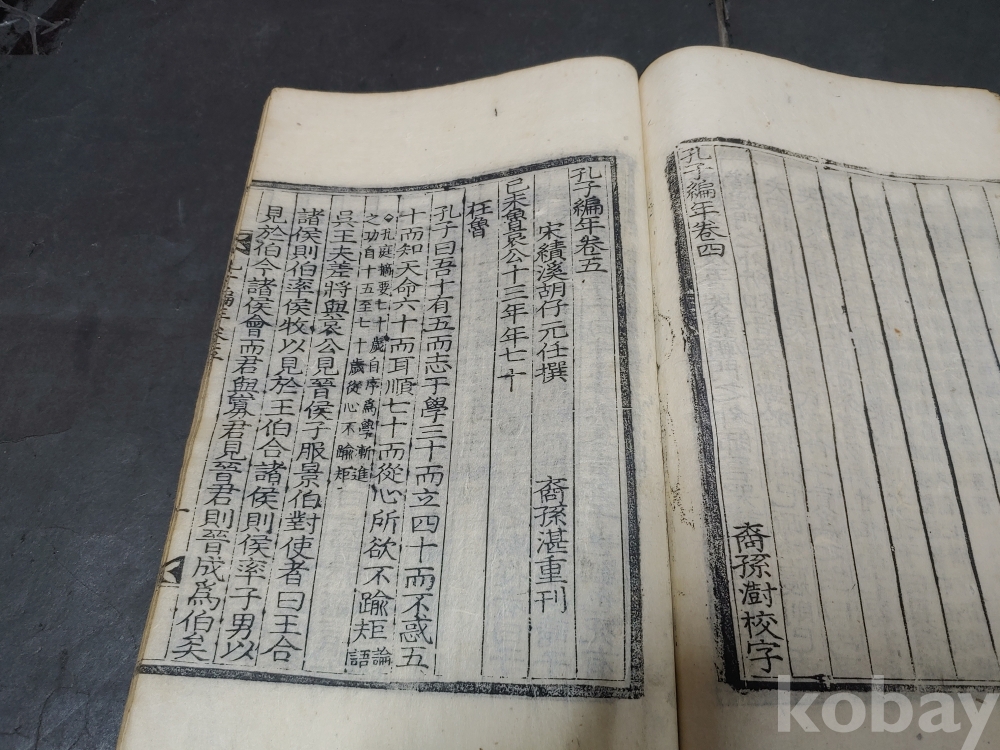 孔子編年卷四
裔孫澍校字
孔子編年卷五
宋績溪胡仔元任撰 裔孫湛重刊
己未魯哀公十三年年七十
在魯
孔子曰吾十有五而志于學三十而立四十而不惑五
十而知天命六十而耳順七十而從心所欲不踰矩論語
孔庭摘要七十歲自序爲學漸進
之功自十五至七十歲從心不踰矩
吳王夫差將與哀公見晉侯子服景伯對使者曰王合
諸侯則伯率侯牧以見於王伯合諸侯則侯率子男以
見於伯今諸侯會而君與寡君見晉君則晉成爲伯矣
kobay